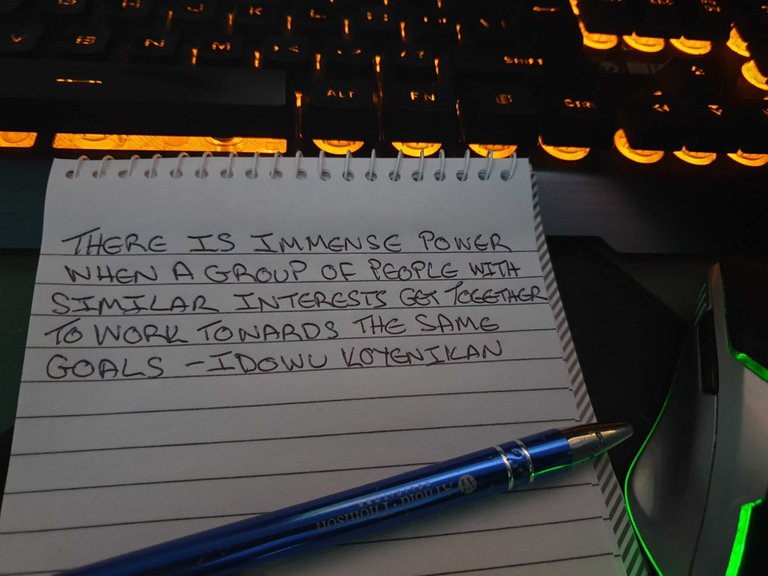 B
N
M
SHIFT
ALT
FN
CTRL
THERE IS IMMENSE POWER
WHEN A GROUP OF PEOPLE WITH
SIMILAR INTERESTS GET TOGETHER
TO WORK TOWARDS THE SAME
GOALS - IDOWU KOYENIKAN
Arnold - Thomson